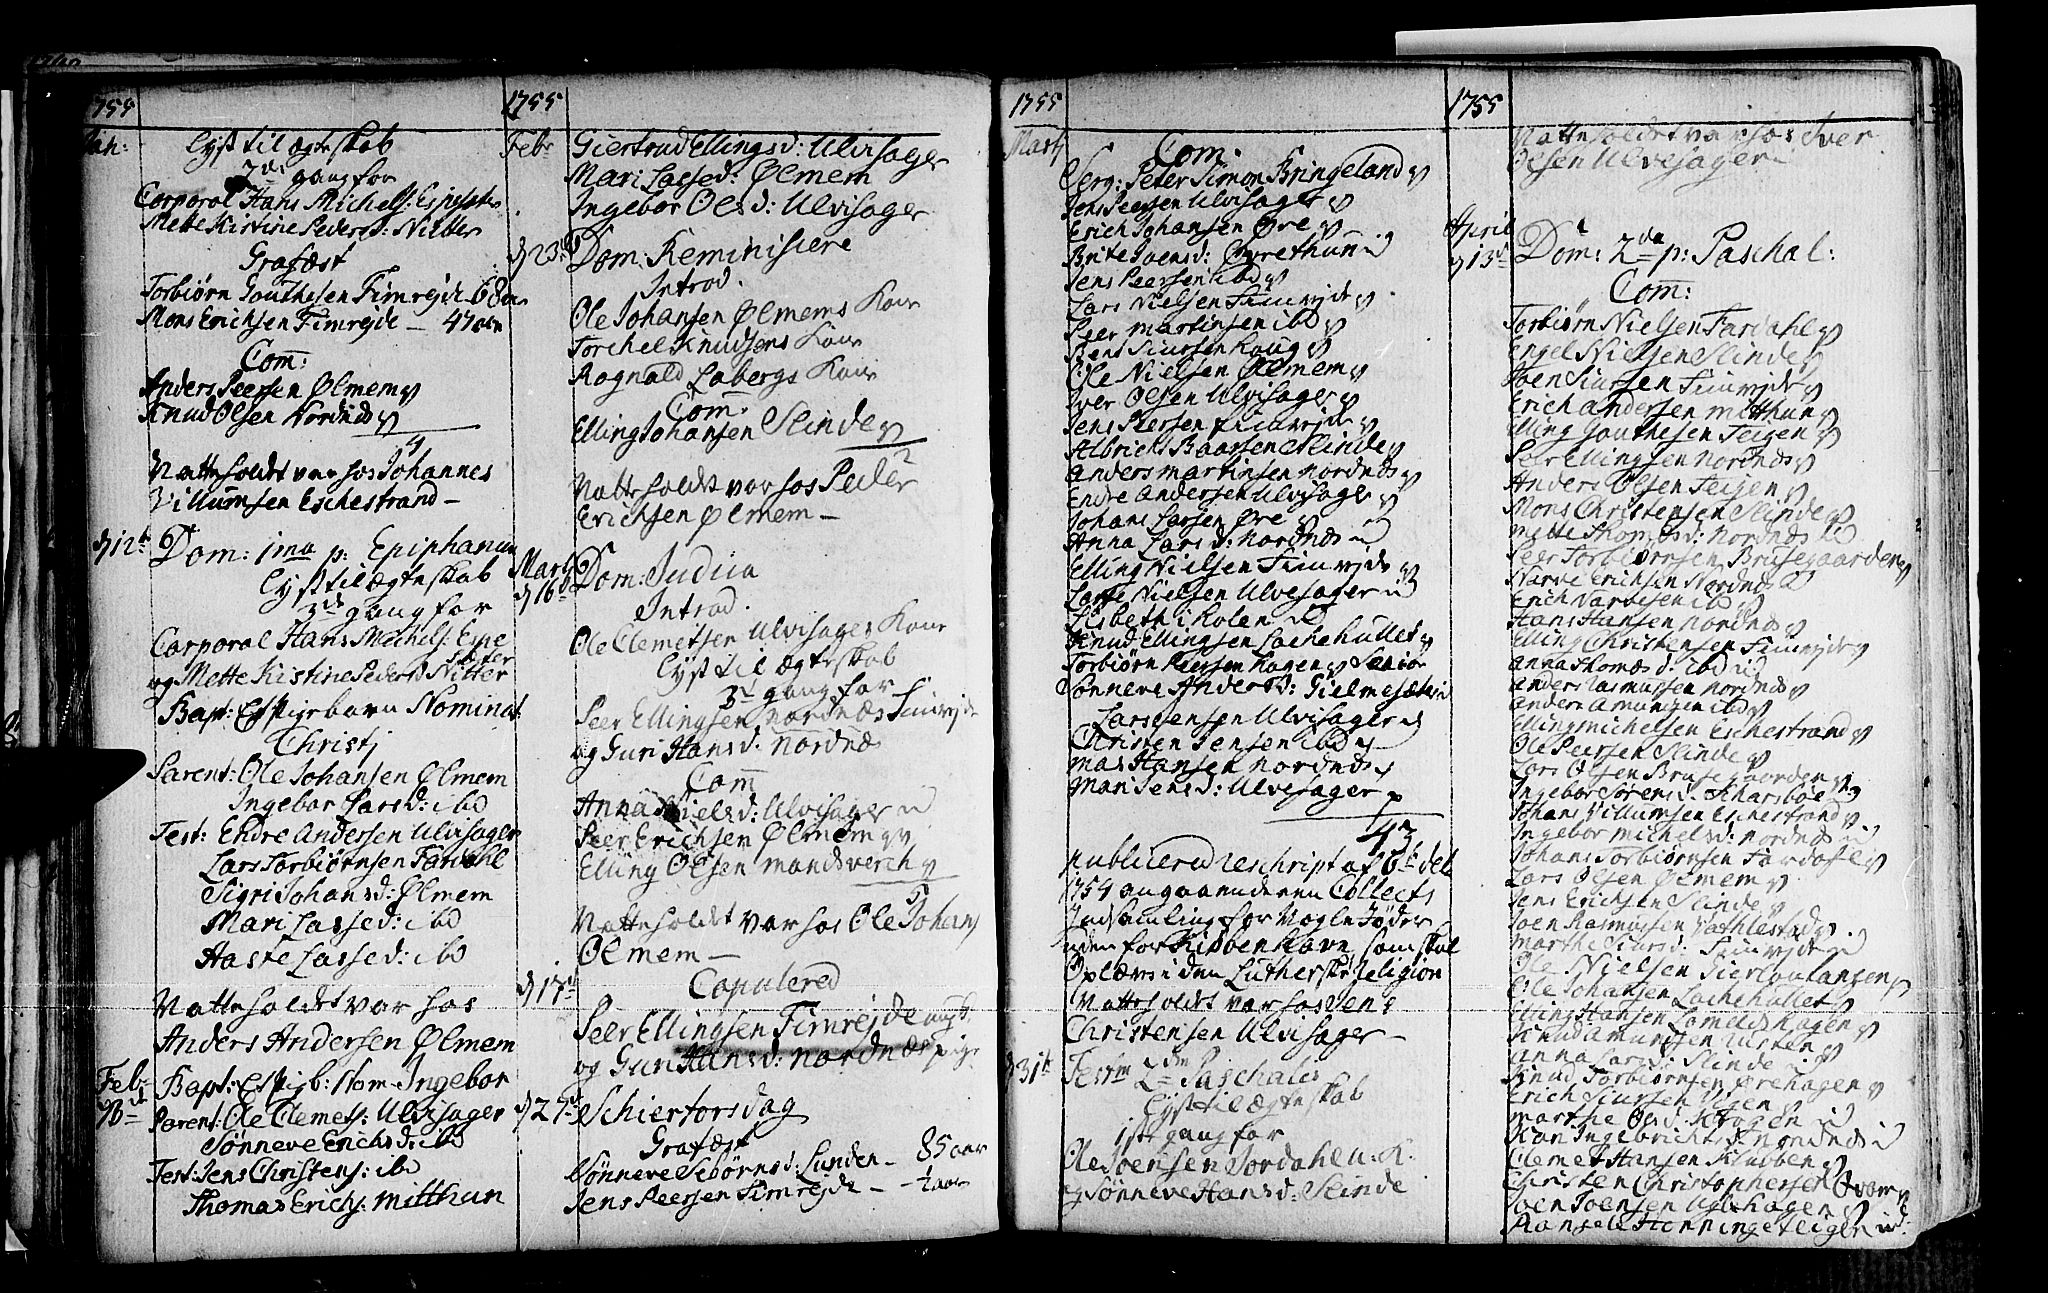 1755
Jan:
Lyst til ægteskab
2de gang for
Corporal Hans Michels: Espeseter
Mette Kirstine Peders d: Nitter
Grafæst
Torbiørn Gouthesen Fimrejde 68 aar
Mons Erichsen Fimrejde — 47 aar
Com:
Anders Peersen Ølmem
Knud Olsen Nordnæs
4
Natteholdet var hos Johannes
Villumsen Eschestrand —
d 12te Dom: 1ma p: Epiphan
Lyst til ægteskab
3de gang for
Corporal Hans Michels: Espe
seter
og Mette Kistine Peders d Nitter
Bapt: Et Pigebarn Nominat:
Christj
Parent: Ole Johansen Ølmem
Ingebor Lars d: ibd
Test: Endre Andersen Ulvisager
Lars Torbiørnsen Fardahl
Sigri Johans d: Ølmem
Mari Lasse d: ibd
Haste Lasse d: ibd
Natteholdet var hos
Anders Andersen Ølmem
Febr
Bapt: Et Pigeb: Nom. Ingebor
Parent: Ole Clemets: Ulvisager
Sønneve Erichs d: ibd
Test: Jens Christens: ibd
Thomas Erichs: Mitthun
1755
Febr
Giertrud Ellings d: Ulvisager
Mari Lasse d: Ølmem
Ingebor Ols d: Ulvisager
d 23de Dom: Reminisiere
Introd.
Ole Johansen Ølmems Kone
Torchel Knudsens Kone
Rognald Labergs Kone
Com:
Elling Johansen Slinde
Natteholdet var hos Peder
Erichsen Ølmem —
Marti
d 16de Dom: Judica
Introd.
Ole Clemetsen Ulvisager Kone
Lyst til ægteskab
3de gang for
Peer Ellingsen Fimrejde
og Guri Hans d: Nordnæs
Com
Anna Niels d: Ulvisager
Peer Erichsen Ølmem
Elling Olsen Mandsverch
Natteholdet var hos Ole Johans
Ølmem —
Copulered
d 17de
Peer Ellingsen Fimrejde ungk.
og Guri Hans d: Nordnæs pige
d 27de Schiertorsdag
Grafæst
Sønneve Sebørns d: Lunden — 85 aar
Jens Peersen Fimrejde — ½ aar
1755
Martj
Com:
Serg: Peter Simon Bringeland
Jens Peersen Ulvisager
Erich Johansen Øre
Brite Joens d: Øvrethun
Jens Peersen ibd
Lars Nielsen Fimrejde
Peer Martinsen ibd
Jens Siursen Haug
Ole Nielsen Ølmem
Iver Olsen Ulvisager
Jens Peersen Fimrejde
Albricht Baarsen Slinde
Anders Martinsen Nordnæs
Endre Andersen Ulvisager
Johans Larsen Øre
Anna Lars d: Nordnæs
Elling Nielsen Fimrejde
Lasse Nielsen Ulvesager
Lisbeth i Kolen
Knud Ellingsen Lachehullet
Torbiørn Peersen Hagen Senior
Sønneve Anders d: Gielmesæter
Lars Jensen Ulvisager
Christen Jensen ibd
Mas Hansen Nordnæs
Mari Jens d: Ulvesager
43
publicered Reschript af 6te dec
1754 angaaende en Collects
Indsamling for Nogle Jøder
uden for Kiøbenhavn som skal
Oplæres i den Lutherske Religion
Natteholdet var hos Jens
Christensen Ulvisager —
d 31te Festm 2dm Paschalis
Lyst til ægteskab
1ste gang for
Ole Joensen Jordahl u: K:
og Sønneve Hans d: Slinde
1755
Natteholdet var hos Iver
Olsen Ulvesager
April
d 13de Dom: 2da p: Paschal:
Com:
Torbiørn Nielsen Fardahl
Engel Nielsen Slinde
Joen Siursen Fimrejde
Erich Andersen Mitthun
Elling Gouthesen Teigen
Peer Ellingsen Nordnæs
Anders Olsen Teigen
Mons Christensen Slinde
Mette Thomas d: Nordnæs
Peer Torbiørnsen Brusegaarden
Narve Erichsen Nordnæs
Erich Narvesen ibd
Hans Hansen Nordnæs
Elling Christensen Fimrejde
Anna Thomas d: ibd
Anders Rasmussen Nordnæs
Anders Amunsen ibd
Elling Michelsen Eschestrand
Ole Peersen Slinde
Lars Olsen Brusegaarden
Ingebor Sørens d: Skarsbøe
Johans Villumsen Eschestrand
Ingebor Michels d: Nordnæs
Johans Torbiørnsen Fardahl
Lars Olsen Ølmem
Jens Erichsen Slinde
Joen Rasmussen Vathlestad
Marthe Siurs d: Fimrejde
Ole Nielsen
Ole Johansen Lachehullet
Elling Hansen Lomelds Hagen
Knud Amundsen
Anna Lars d: Slinde
Knud Torbiørnsen Ørehagen
Erich Siursen Vigen
Marthe Ols d: Krogen
Kari Ingebrichts d: Nordnæs
Clemet Hansen Klubben
Christen Christophersen
Joen Joensen Ulshagen